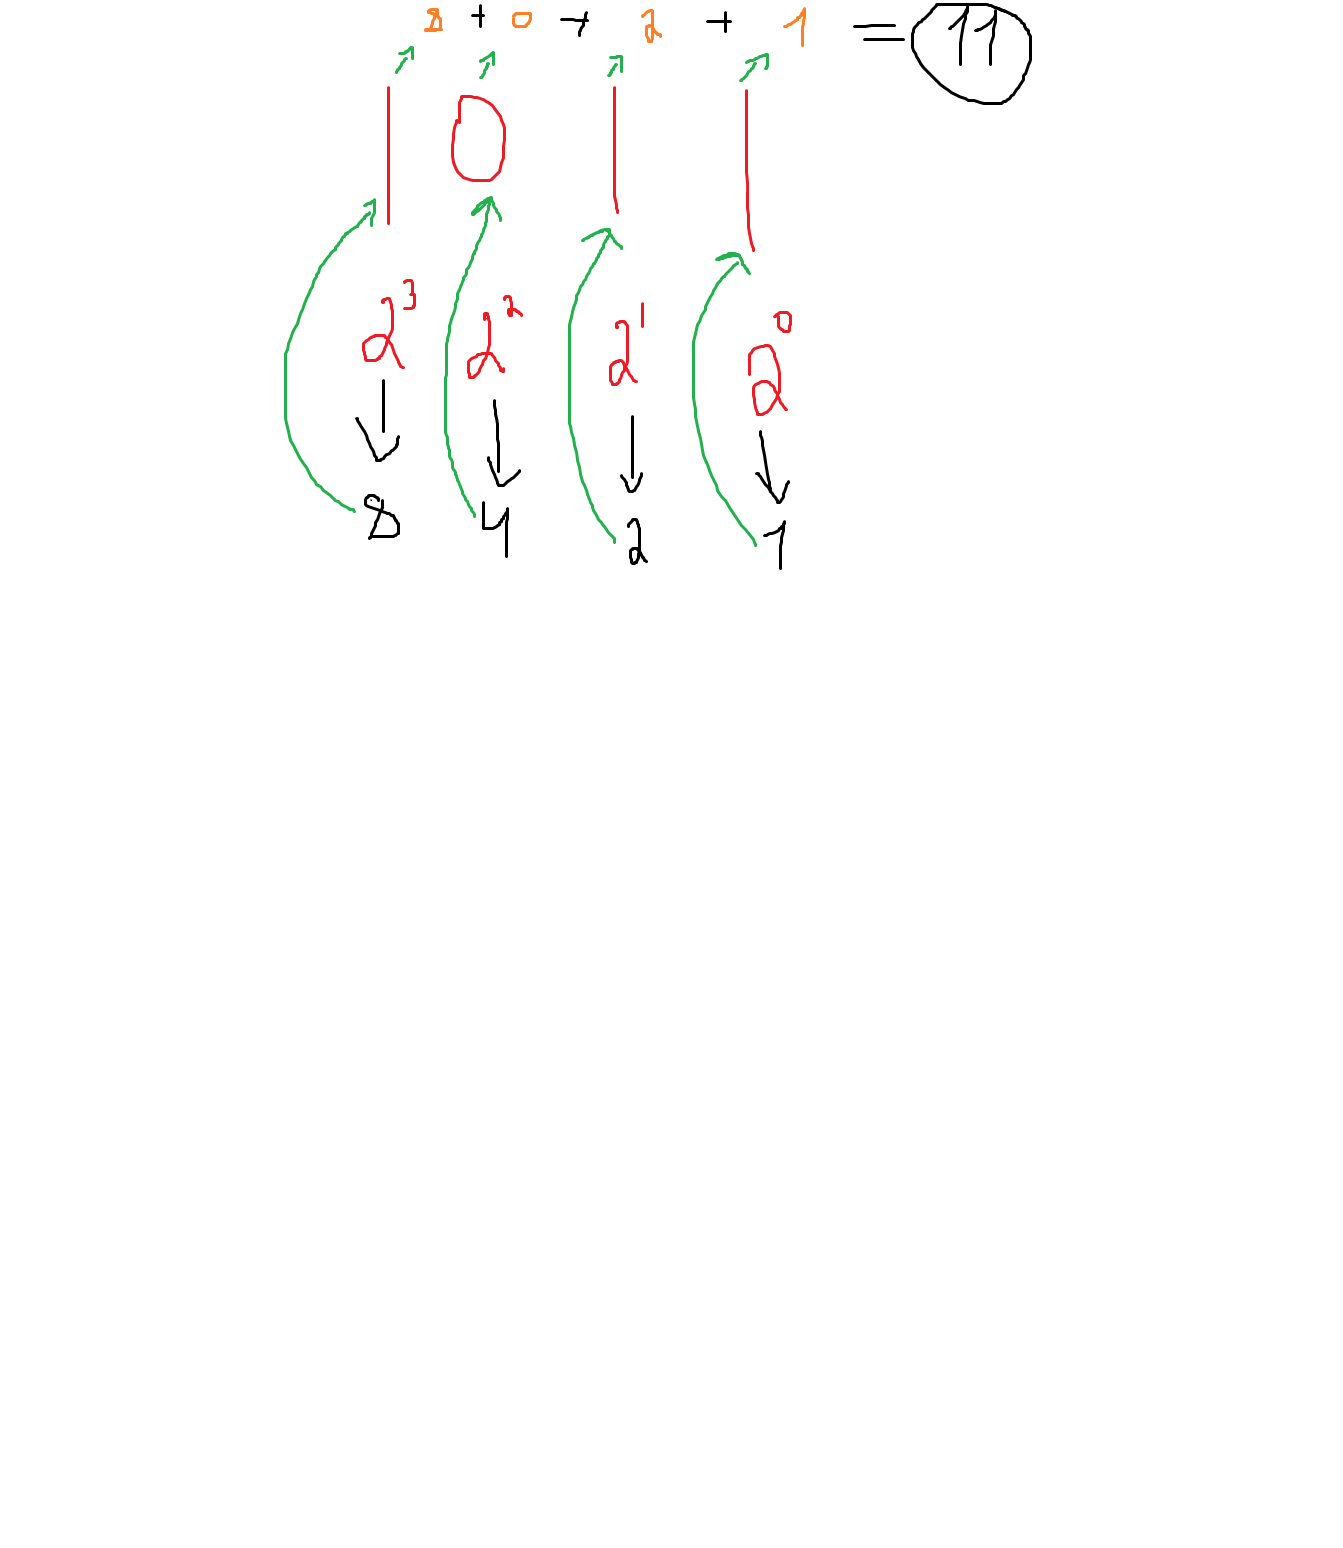 8 + 0 + 2 + 1 = 11
1 0 1 1
2³ 2² 2¹ 2⁰
8 4 2 1